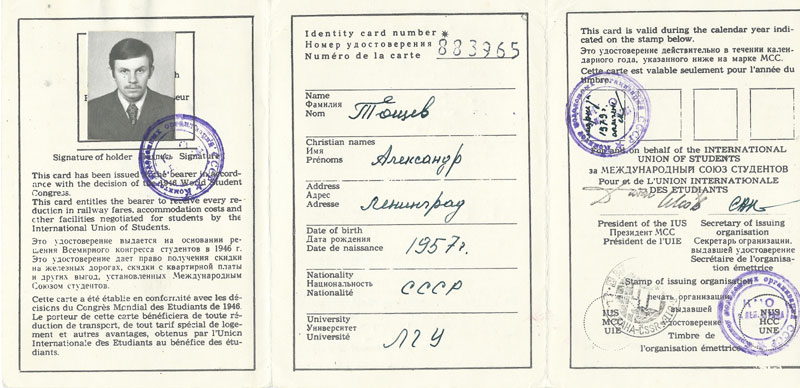 Signature of holder
Signature
This card has been issued to the bearer in accord-
ance with the decision of the 1946 World Student
Congress.
This card entitles the bearer to receive every re-
duction in railway fares, accommodation costs and
other facilities negotiated for students by the
International Union of Students.
Это удостоверение выдается на основании ре-
шения Всемирного конгресса студентов в 1946 г.
Это удостоверение дает право получения скидки
на железных дорогах, скидки с квартирной платы
и других выгод, установленных Международным
Союзом студентов.
Cette carte a été établie en conformité avec les dé-
cisions du Congrès Mondial des Etudiants de 1946.
Le porteur de cette carte bénéficiera de toute ré-
duction de transport, de tout tarif spécial de loge-
ment et autres avantages, obtenus par l'Union
Internationale des Etudiants au bénéfice des étu-
diants.
Identity card number
Номер удостоверения
Numéro de la carte
883965
Name
Фамилия
Nom
Тощев
Christian names
Имя
Prénoms
Александр
Address
Адрес
Adresse
Ленинград
Date of birth
Дата рождения
Date de naissance
1957г.
Nationality
Национальность
Nationalité
СССР
University
Университет
Université
ЛГУ
This card is valid during the calendar year indi-
cated on the stamp below.
Это удостоверение действительно в течении кален-
дарного года, указанного ниже на марке МСС.
Cette carte est valable seulement pour l'année du
timbre.
1979
For and on behalf of the INTERNATIONAL
UNION OF STUDENTS
за МЕЖДУНАРОДНЫЙ СОЮЗ СТУДЕНТОВ
Pour et de L'UNION INTERNATIONALE
DES ETUDIANTS
President of the IUS
Президент МСС
Président de l'UIE
Secretary of issuing
organisation
Секретарь организации,
выдавшей удостоверение
Secrétaire de l'organisa-
tion émettrice
Stamp of issuing organisation
печать организации
выдавшей
удостоверение
Timbre de
l'organisation émettrice
IUS
МСС
UIE
NUS
НСС
UNE